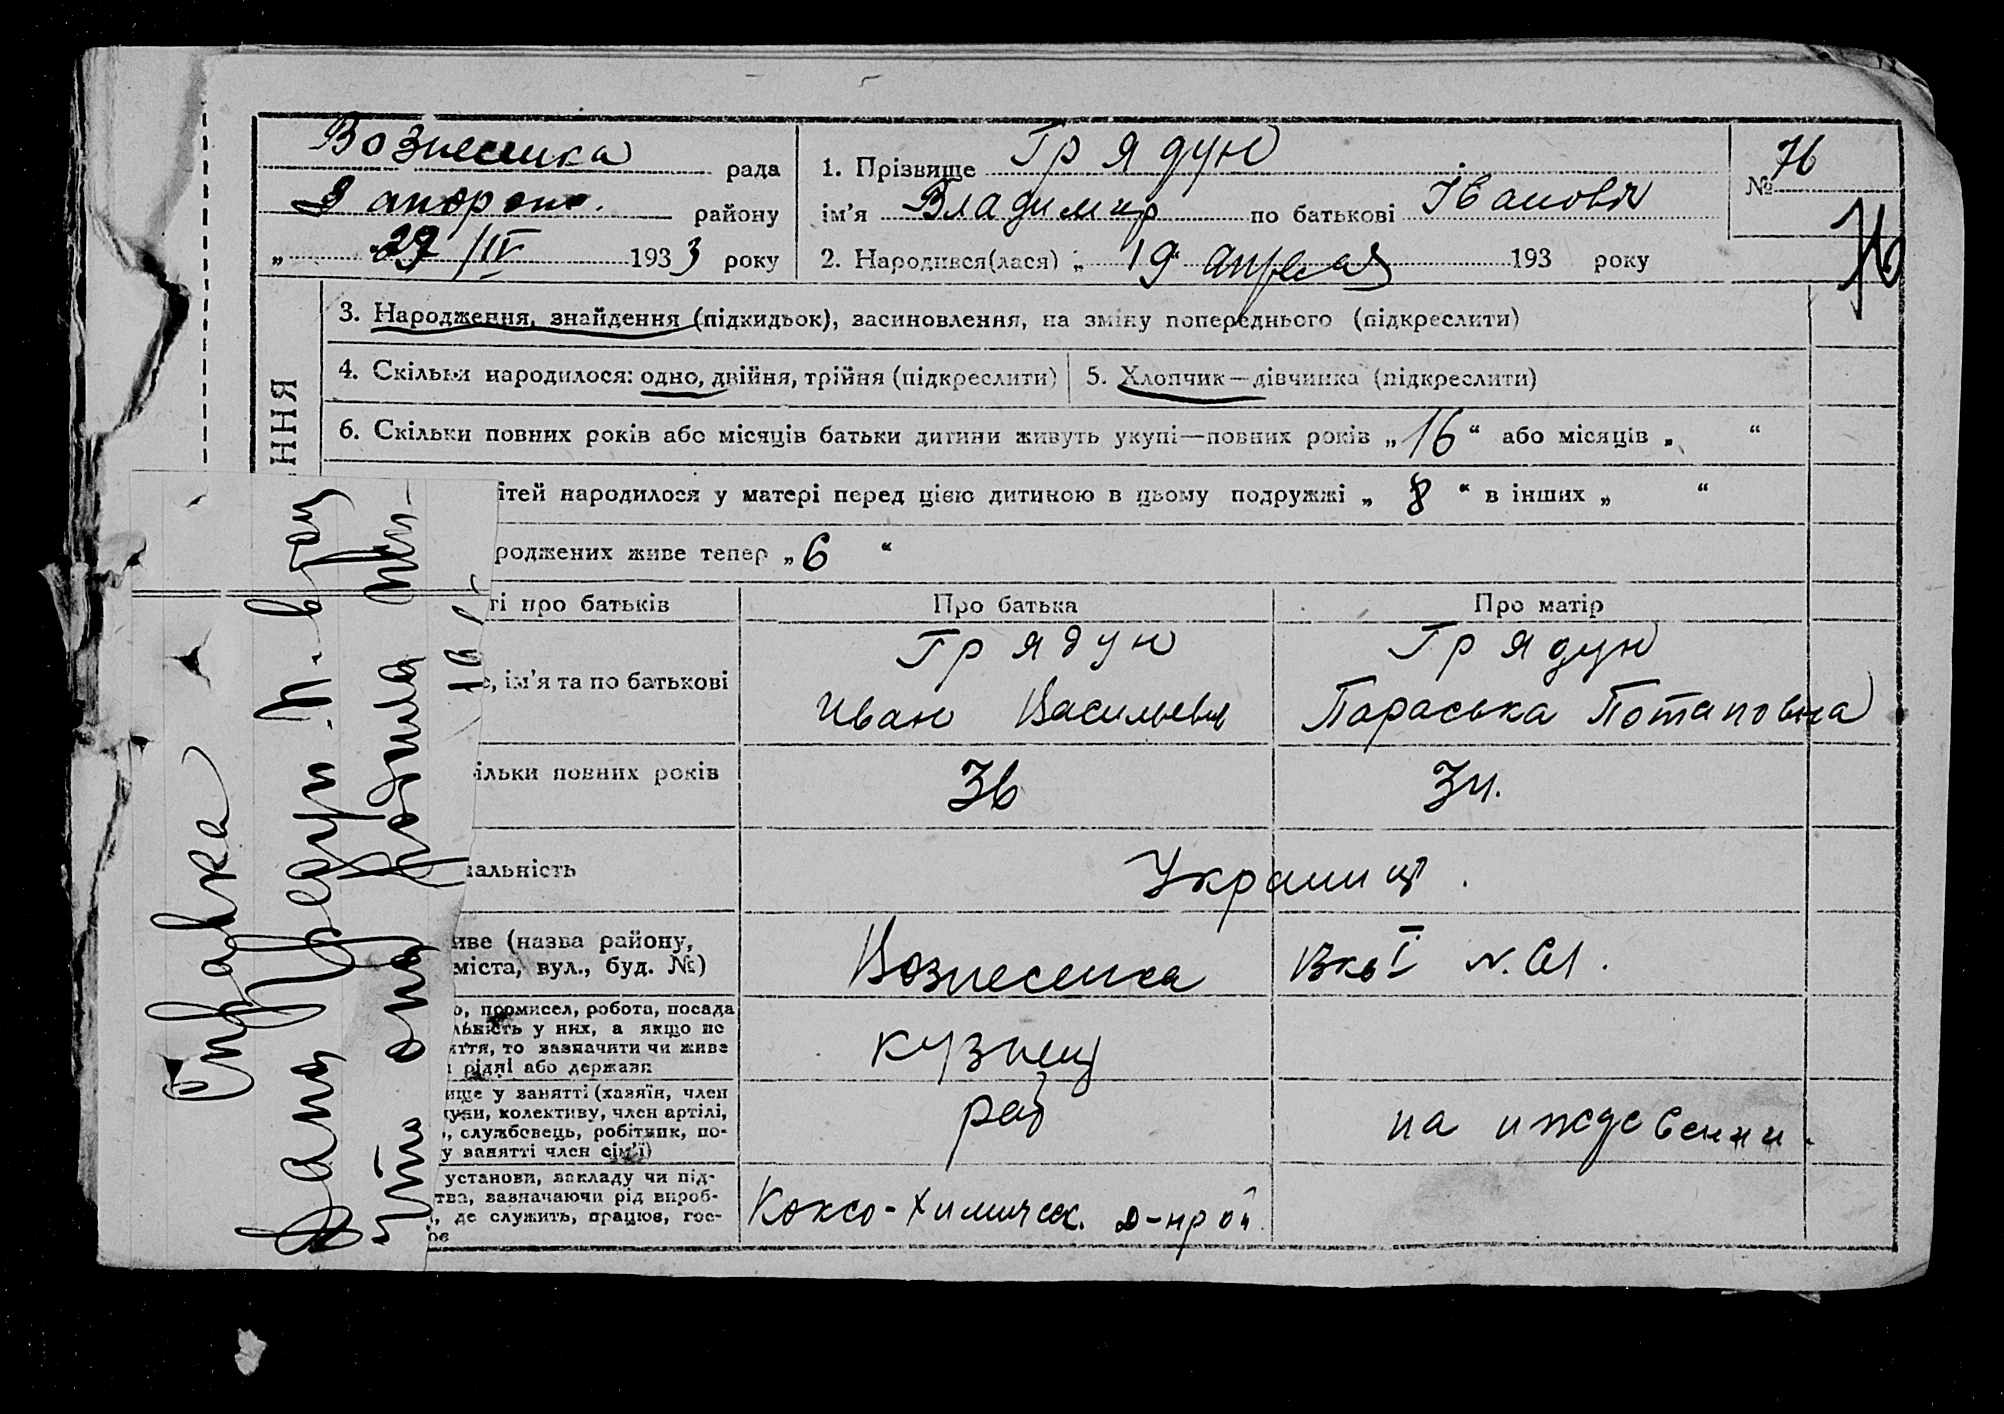 Вознесенка рада
Запорож. району
„ 29/IV 1933 року
1. Прізвище Грядун
ім'я Владимир по батькові Іванович
2. Народився(лася) „ 19 " апреля 193 року
№ 76
76
3. Народження, знайдення (підкидьок), засиновлення, на зміну попереднього (підкреслити)
4. Скільки народилося: одно, двійня, трійня (підкреслити)
5. Хлопчик—дівчинка (підкреслити)
ННЯ
6. Скільки повних років або місяців батьки дитини живуть укупі—повних років „ 16 “ або місяців „ “
ітей народилося у матері перед цією дитиною в цьому подружжі „ 8 “ в інших „ “
роджених живе тепер „ 6 “
ті про батьків
Про батька
Про матір
, ім'я та по батькові
Грядун
Иван Васильевич
Грядун
Параська Потаповна
ільки повних років
36
34.
альність
Украинц.
иве (назва району,
міста, вул., буд. №)
Вознесенка
о, промисел, робота, посада
льність у них, а якщо не
яття, то зазначити чи живе
рідні або держави
кузнец
ище у занятті (хазяїн, член
уни, колективу, член артілі,
, службовець, робітник, по-
у занятті член сім'ї)
раб
на иждевении.
установи, закладу чи під-
тва, зазначаючи рід вироб-
, де служить, працює, гос-
ює
Коксо-Химическ. Д-нрой
Справка
Дана Грядун П. в том
что она родила